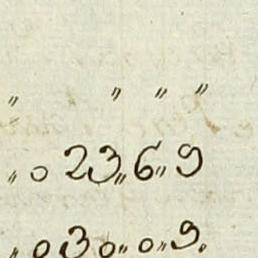 " " " "
" 0 23" 6" 9
" 0 30" 0" 9.